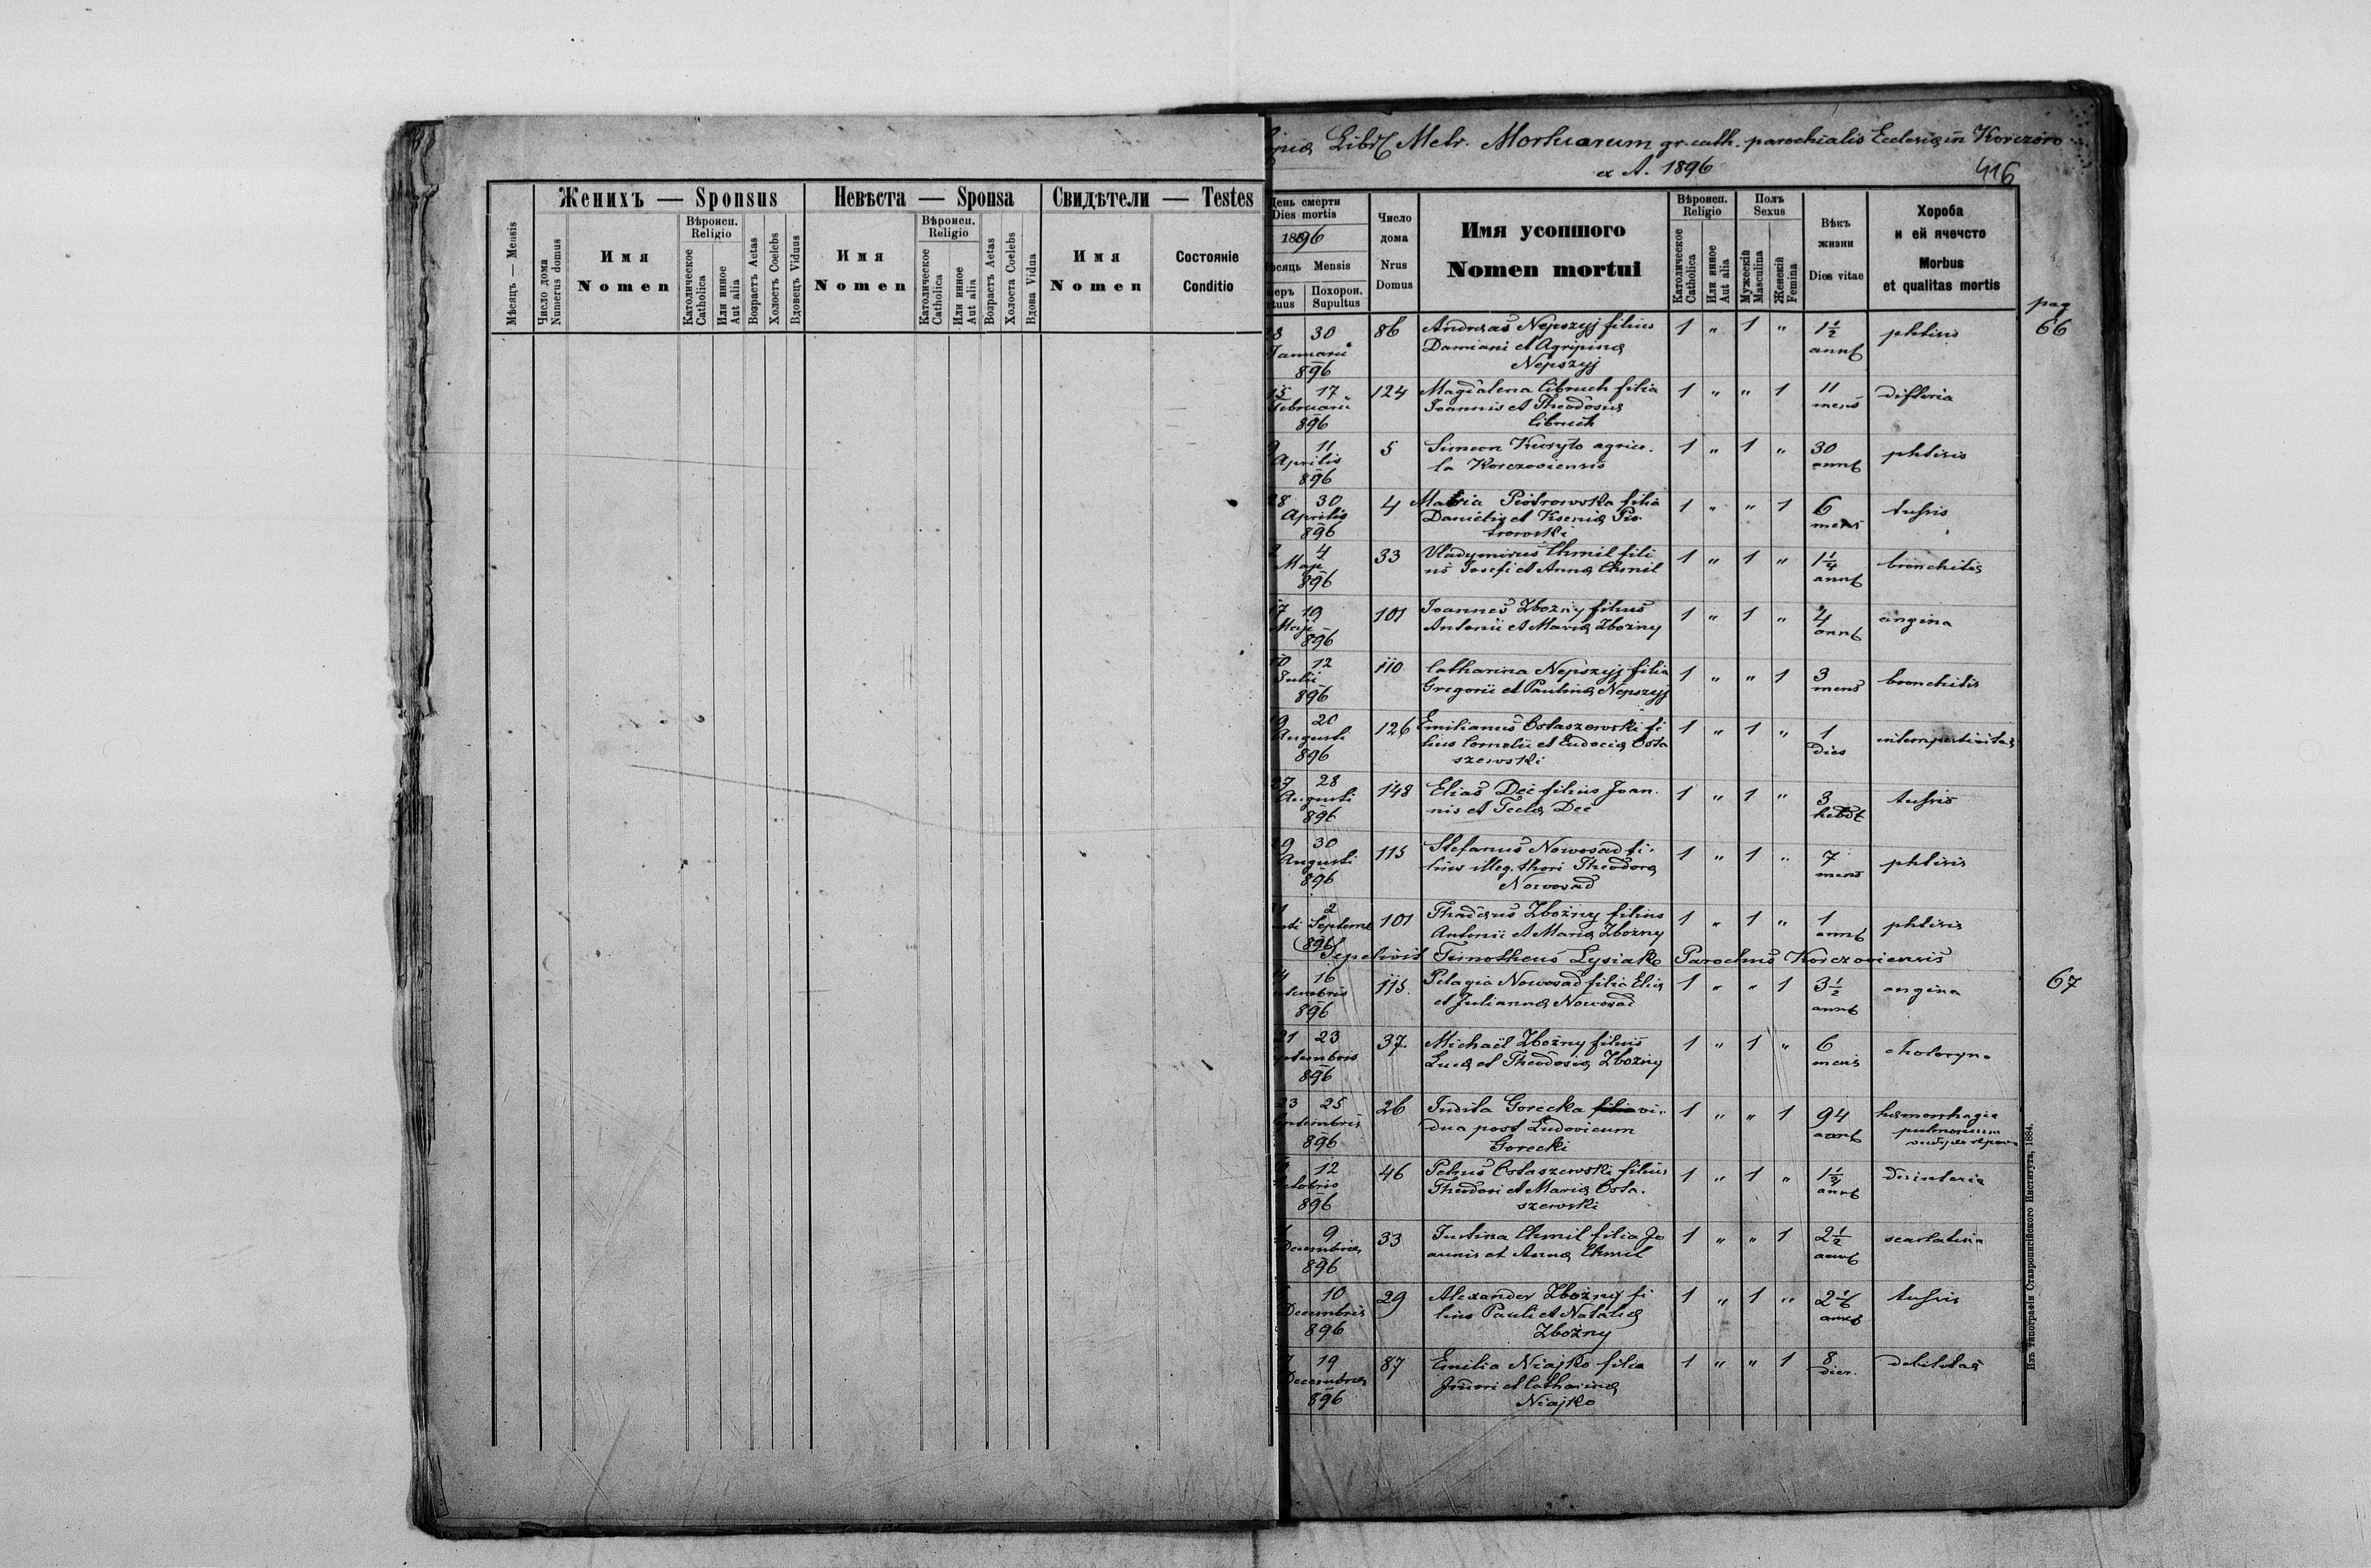 Женихъ — Sponsus
Невѣста — Sponsa
Свидѣтели — Testes
Мѣсяцъ — Mensis
Число дома
Numerus domus
Имя
Nomen
Вѣроисп.
Religio
Католическое
Catholica
Или инное
Aut alia
Возрастъ Aetas
Холостъ Coelebs
Вдовецъ Viduus
Имя
Nomen
Вѣроисп.
Religio
Католическое
Catholica
Или инное
Aut alia
Возрастъ Aetas
Холоста Coelebs
Вдова Vidua
Имя
Nomen
Состояніе
Conditio
Libri Metr. Mortuorum gr. cath. parochialis Ecclesiæ in Korczów
ex A. 1896
416
День смерти
Dies mortis
1896
Mensis
Похорон.
Supultus
Число
дома
Nrus
Domus
Имя усопшого
Nomen mortui
Вѣроисп.
Religio
Католическое
Catholica
Или инное
Aut alia
Полъ
Sexus
Мужескій
Masculina
Женскій
Femina
Вѣкъ
жизни
Dies vitae
Хороба
и ей ячечсто
Morbus
et qualitas mortis
pag
28 30 86 Andreas Nepszyj filius 1 " 1 " 1 1/2 phtisis 66
Januarii Damiani et Agripinæ ann
896 Nepszyj
15 17 124 Magdalena Cibruch filia 1 " " 1 11 difteria
Februarii Joannis et Theodosiæ mens
896 Cibruch
9 11 5 Simeon Kuryto agrico- 1 " 1 " 30 phtisis
Aprilis la Korczoviensis ann
896
28 30 4 Maria Piotrowska filia 1 " " 1 6 tussis
Aprilis Danielis et Kseniæ Pio- mens
896 trowski
2 4 33 Vladymirus Chmil fili 1 " 1 " 1 1/4 bronchitis
Maji us Josefi et Annæ Chmil ann
896
17 19 101 Joannes Zbożny filius 1 " 1 " 4 angina
Maji Antonii et Mariæ Zbożny ann
896
10 12 110 Catharina Nepszyj filia 1 " " 1 3 bronchitis
Julii Gregorii et Paulinæ Nepszyj mens
896
19 20 126 Emilianus Ostaszewski fi 1 " 1 " 1 intempestivitas
Augusti lius Cornelii et Eudociæ Osta dies
896 szewski
27 28 148 Elias Dec filius Joan- 1 " 1 " 3 tussis
Augusti nis et Teclæ Dec hebd
896
29 30 115 Stefanus Nowosad fi- 1 " 1 " 7 phtisis
Augusti lius illeg. thori Theodoræ mens
896 Nowosad
31 2 101 Thadæus Zbożny filius 1 " 1 " 1 phtisis
Septemb Antonii et Mariæ Zbożny ann
896
Sepelivit Timotheus Lysiak Parochus Korczoviensis
14 16 115. Pelagia Nowosad filia Eliæ 1 " " 1 3 1/2 angina 67
et Juliannæ Nowosad ann
896
21 23 37. Michaël Zbożny filius 1 " 1 " 6
Lucæ et Theodosiæ Zbożny mens
896
23 25 26 Judita Gorecka filia vi- 1 " " 1 94 hæmorrhagia
dua post Ludovicum ann pulmonum
896 Gorecki
12 46 Petrus Ostaszewski filius 1 " 1 " disinteria
Theodori et Mariæ Osta- ann
896 szewski
9 33 Justina Chmil filia Jo 1 " " 1 2 1/2 scarlatina
Decembris annis et Annæ Chmil ann
896
10 29 Alexander Zbożny fi 1 " 1 " 2 1/6 tussis
Decembris lius Pauli et Nataliæ ann
896 Zbożny
19 87 Emilia Niajko filia 1 " " 1 8 debilitas
Decembris et Catharinæ dier.
896 Niajko
Изъ типографіи Ставропигійского Института, 1884.